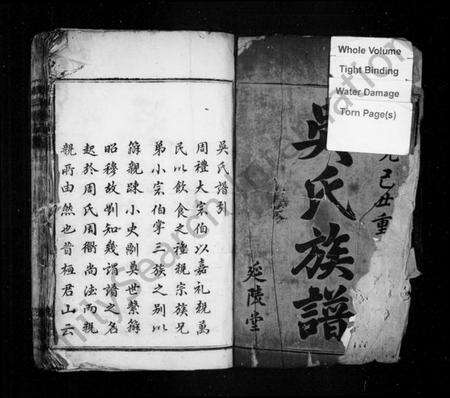 Whole Volume
Tight Binding
Water Damage
Torn Page(s)
己丑重
吳氏族譜
延陵堂
吳氏譜引
周禮大宗伯以嘉礼親萬
民以飲食之禮親宗族兄
弟小宗伯掌三族之別以
辨親踈小史則奠世繫辯
昭穆故則知幾譜諜之名
起於周氏周衡尚法而親
親所由然也昔桓君山云